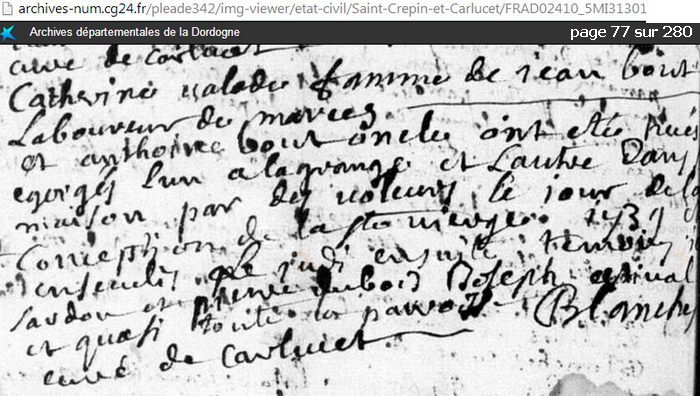 archives-num.cg24.fr/pleade342/img-viewer/etat-civil/Saint-Crepin-et-Carlucet/FRAD02410_5MI31301
Archives départementales de la Dordogne
page 77 sur 280
curé de carlucet
Catherine valade famme de jean bout
Laboureur de
et anthoine bout oncle ont eté
egorgés l'un a la grange et Lautre Dans
maison par des voleurs le jour de
Conception de la ste vierge 1739
ensevelis le judi ensuite
et pierre dubois Joseph
et quasi toute la Blanch
curé de Carlucet